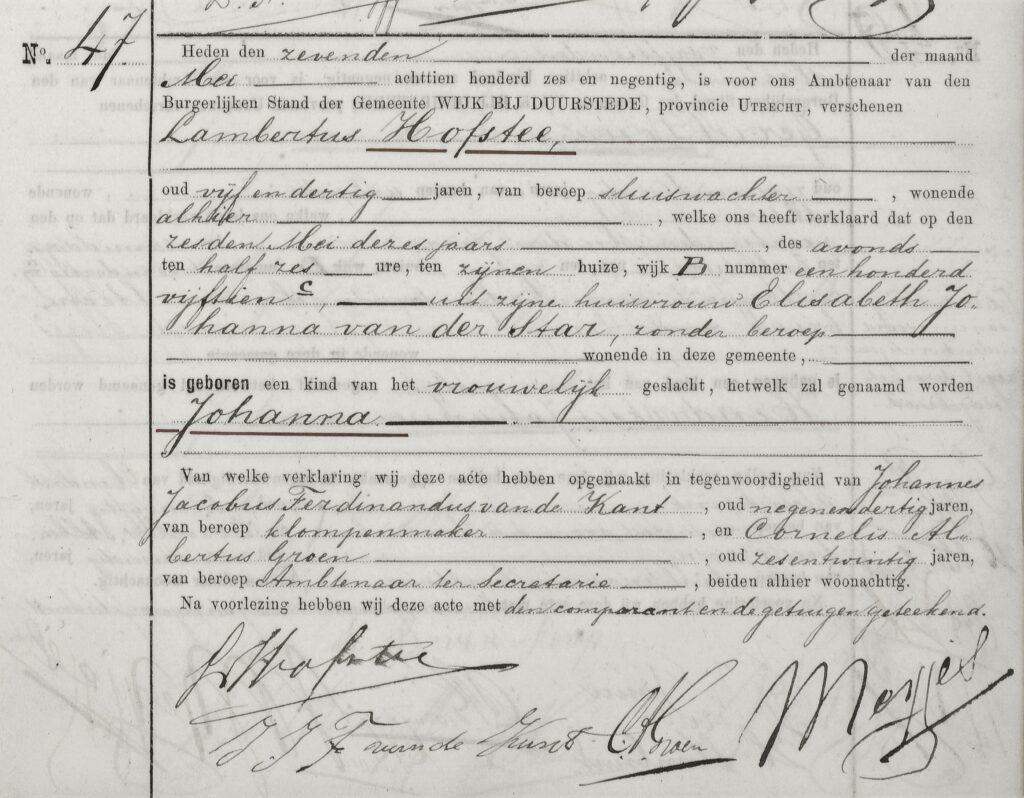 No. 47
Heden den zevenden der maand
Mei achttien honderd zes en negentig, is voor ons Ambtenaar van den
Burgerlijken Stand der Gemeente WIJK BIJ DUURSTEDE, provincie UTRECHT, verschenen
Lambertus Hofstee,
oud vijf en dertig jaren, van beroep sluiswachter, wonende
alhier, welke ons heeft verklaard dat op den
zesden Mei dezes jaars, des avonds
ten half zes ure, ten zijnen huize, wijk B nummer een honderd
vijftien c, uit zijne huisvrouw Elisabeth Jo-
hanna van der Star, zonder beroep
wonende in deze gemeente,
is geboren een kind van het vrouwelijk geslacht, hetwelk zal genaamd worden
Johanna
Van welke verklaring wij deze acte hebben opgemaakt in tegenwoordigheid van Johannes
Jacobus Ferdinandus van de Kant, oud negenendertig jaren,
van beroep klompenmaker, en Cornelis Al-
bertus Groen, oud zesentwintig jaren,
van beroep Ambtenaar ter Secretarie, beiden alhier woonachtig.
Na voorlezing hebben wij deze acte met den comparant en de getuigen geteekend.
L Hofstee
J. J. F. van de Kant C.A. Groen